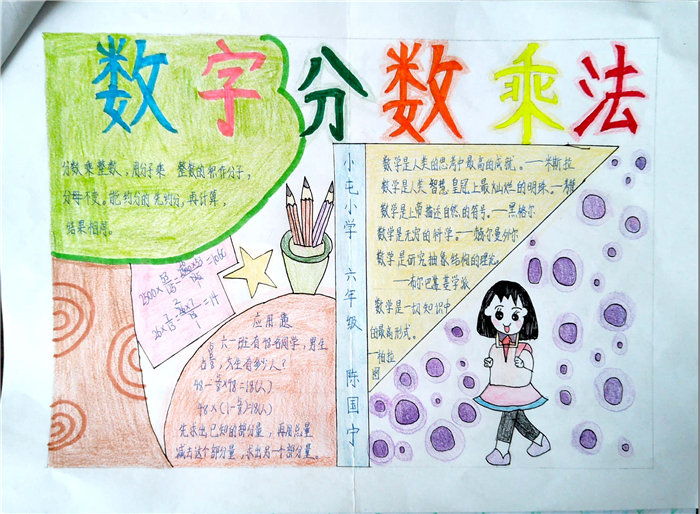 数字分数乘法
分数乘整数，用分子乘 整数的积作分子，
分母不变。能约分的先约分，再计算，
结果相同。
应用题
六一班有48名同学，男生
女生有多少人？
先求出已知的部分量，再用总量
减去这个部分量，求出另一个部分量。
小屯小学 六年级 陈国宁
数学是人类的思考中最高的成就。——米斯拉
数学是人类智慧皇冠上最灿烂的明珠。——考
数学是上帝描述自然的符号。——黑格尔
数学是无穷的科学。——赫尔曼外尔
数学是研究抽象结构的理论
——布尔巴基学派
数学是一切知识中
的最高形式。
—柏拉
图